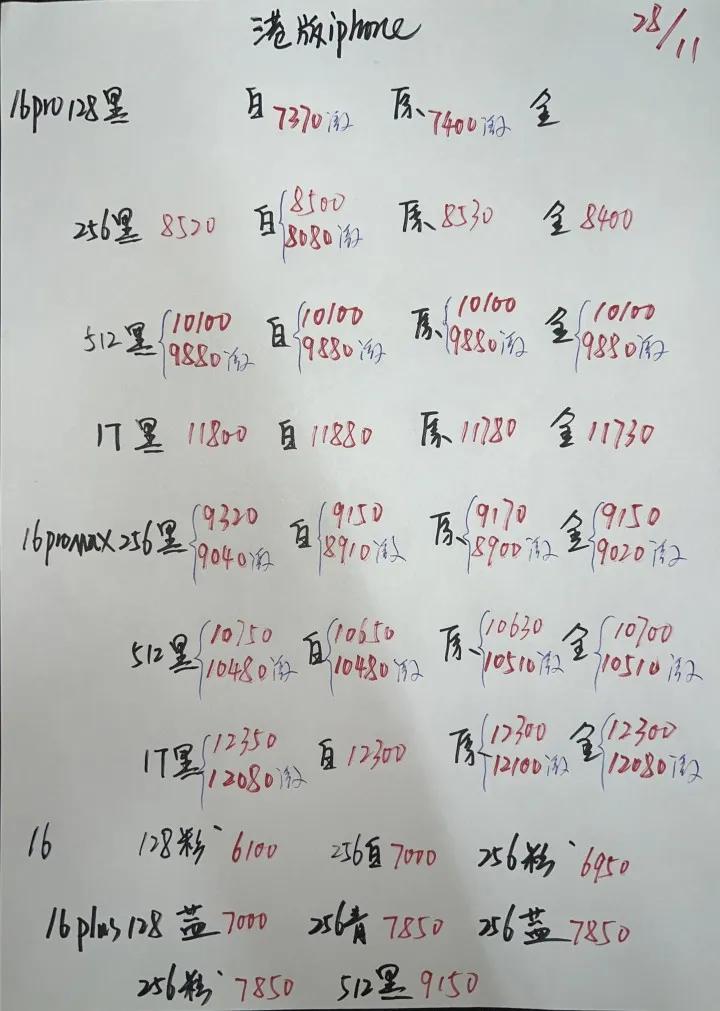 港版iphone 28/11
16pro128黑 白7370激 原、7400激 金
256黑 8520 白{8500 8080激 原、8530 金8400
512黑{10100 9880激 白{10100 9880激 原、{10100 9880激 金{10100 9880激
1T黑 11800 白11880 原、11780 金11730
16promax256黑{9320 9040激 白{9150 8910激 原、{9170 8900激 金{9150 9020激
512黑{10750 10480激 白{10650 10480激 原、{10630 10510激 金{10700 10510激
1T黑{12350 12080激 白12300 原、{12300 12100激 金{12300 12080激
16 128粉6100 256白7000 256粉6950
16plus128蓝7000 256青7850 256蓝7850
256粉7850 512黑9150